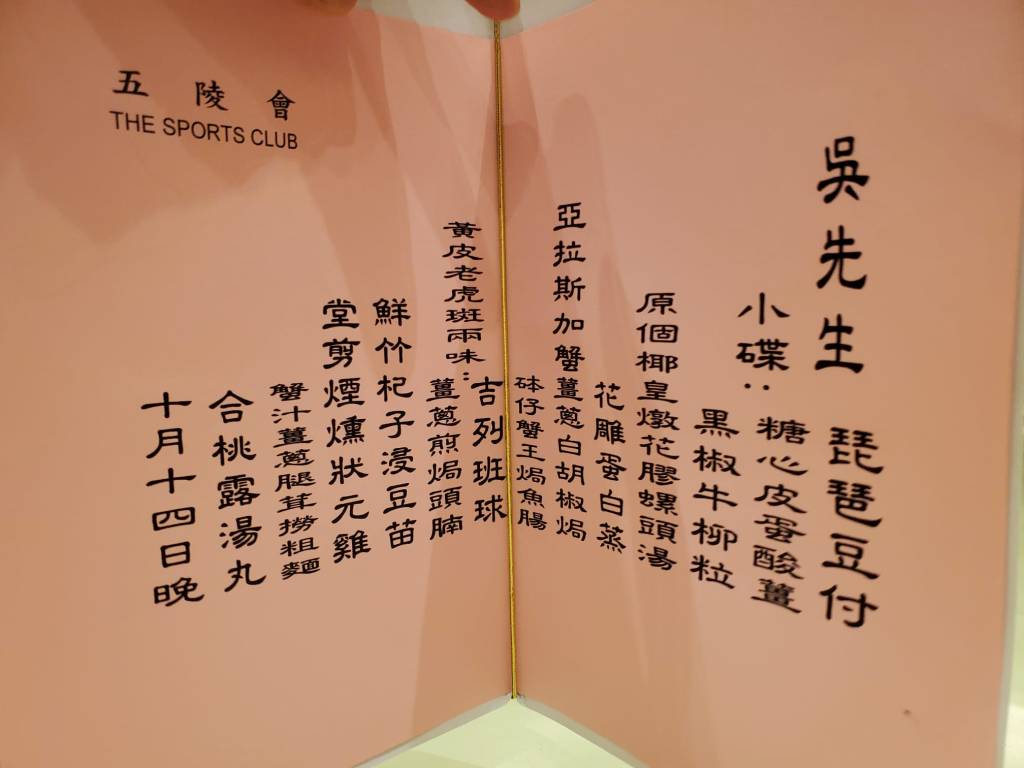 吳先生
小碟：
琵琶豆付
糖心皮蛋酸薑
黑椒牛柳粒
原個椰皇燉花膠螺頭湯
亞拉斯加蟹
花雕蛋白蒸
薑蔥白胡椒焗
砵仔蟹王焗魚腸
黃皮老虎斑兩味：
吉列班球
薑蔥煎焗頭腩
鮮竹杞子浸豆苗
堂剪煙燻狀元雞
蟹汁薑蔥腿茸撈粗麵
合桃露湯丸
十月十四日晚
五陵會
THE SPORTS CLUB